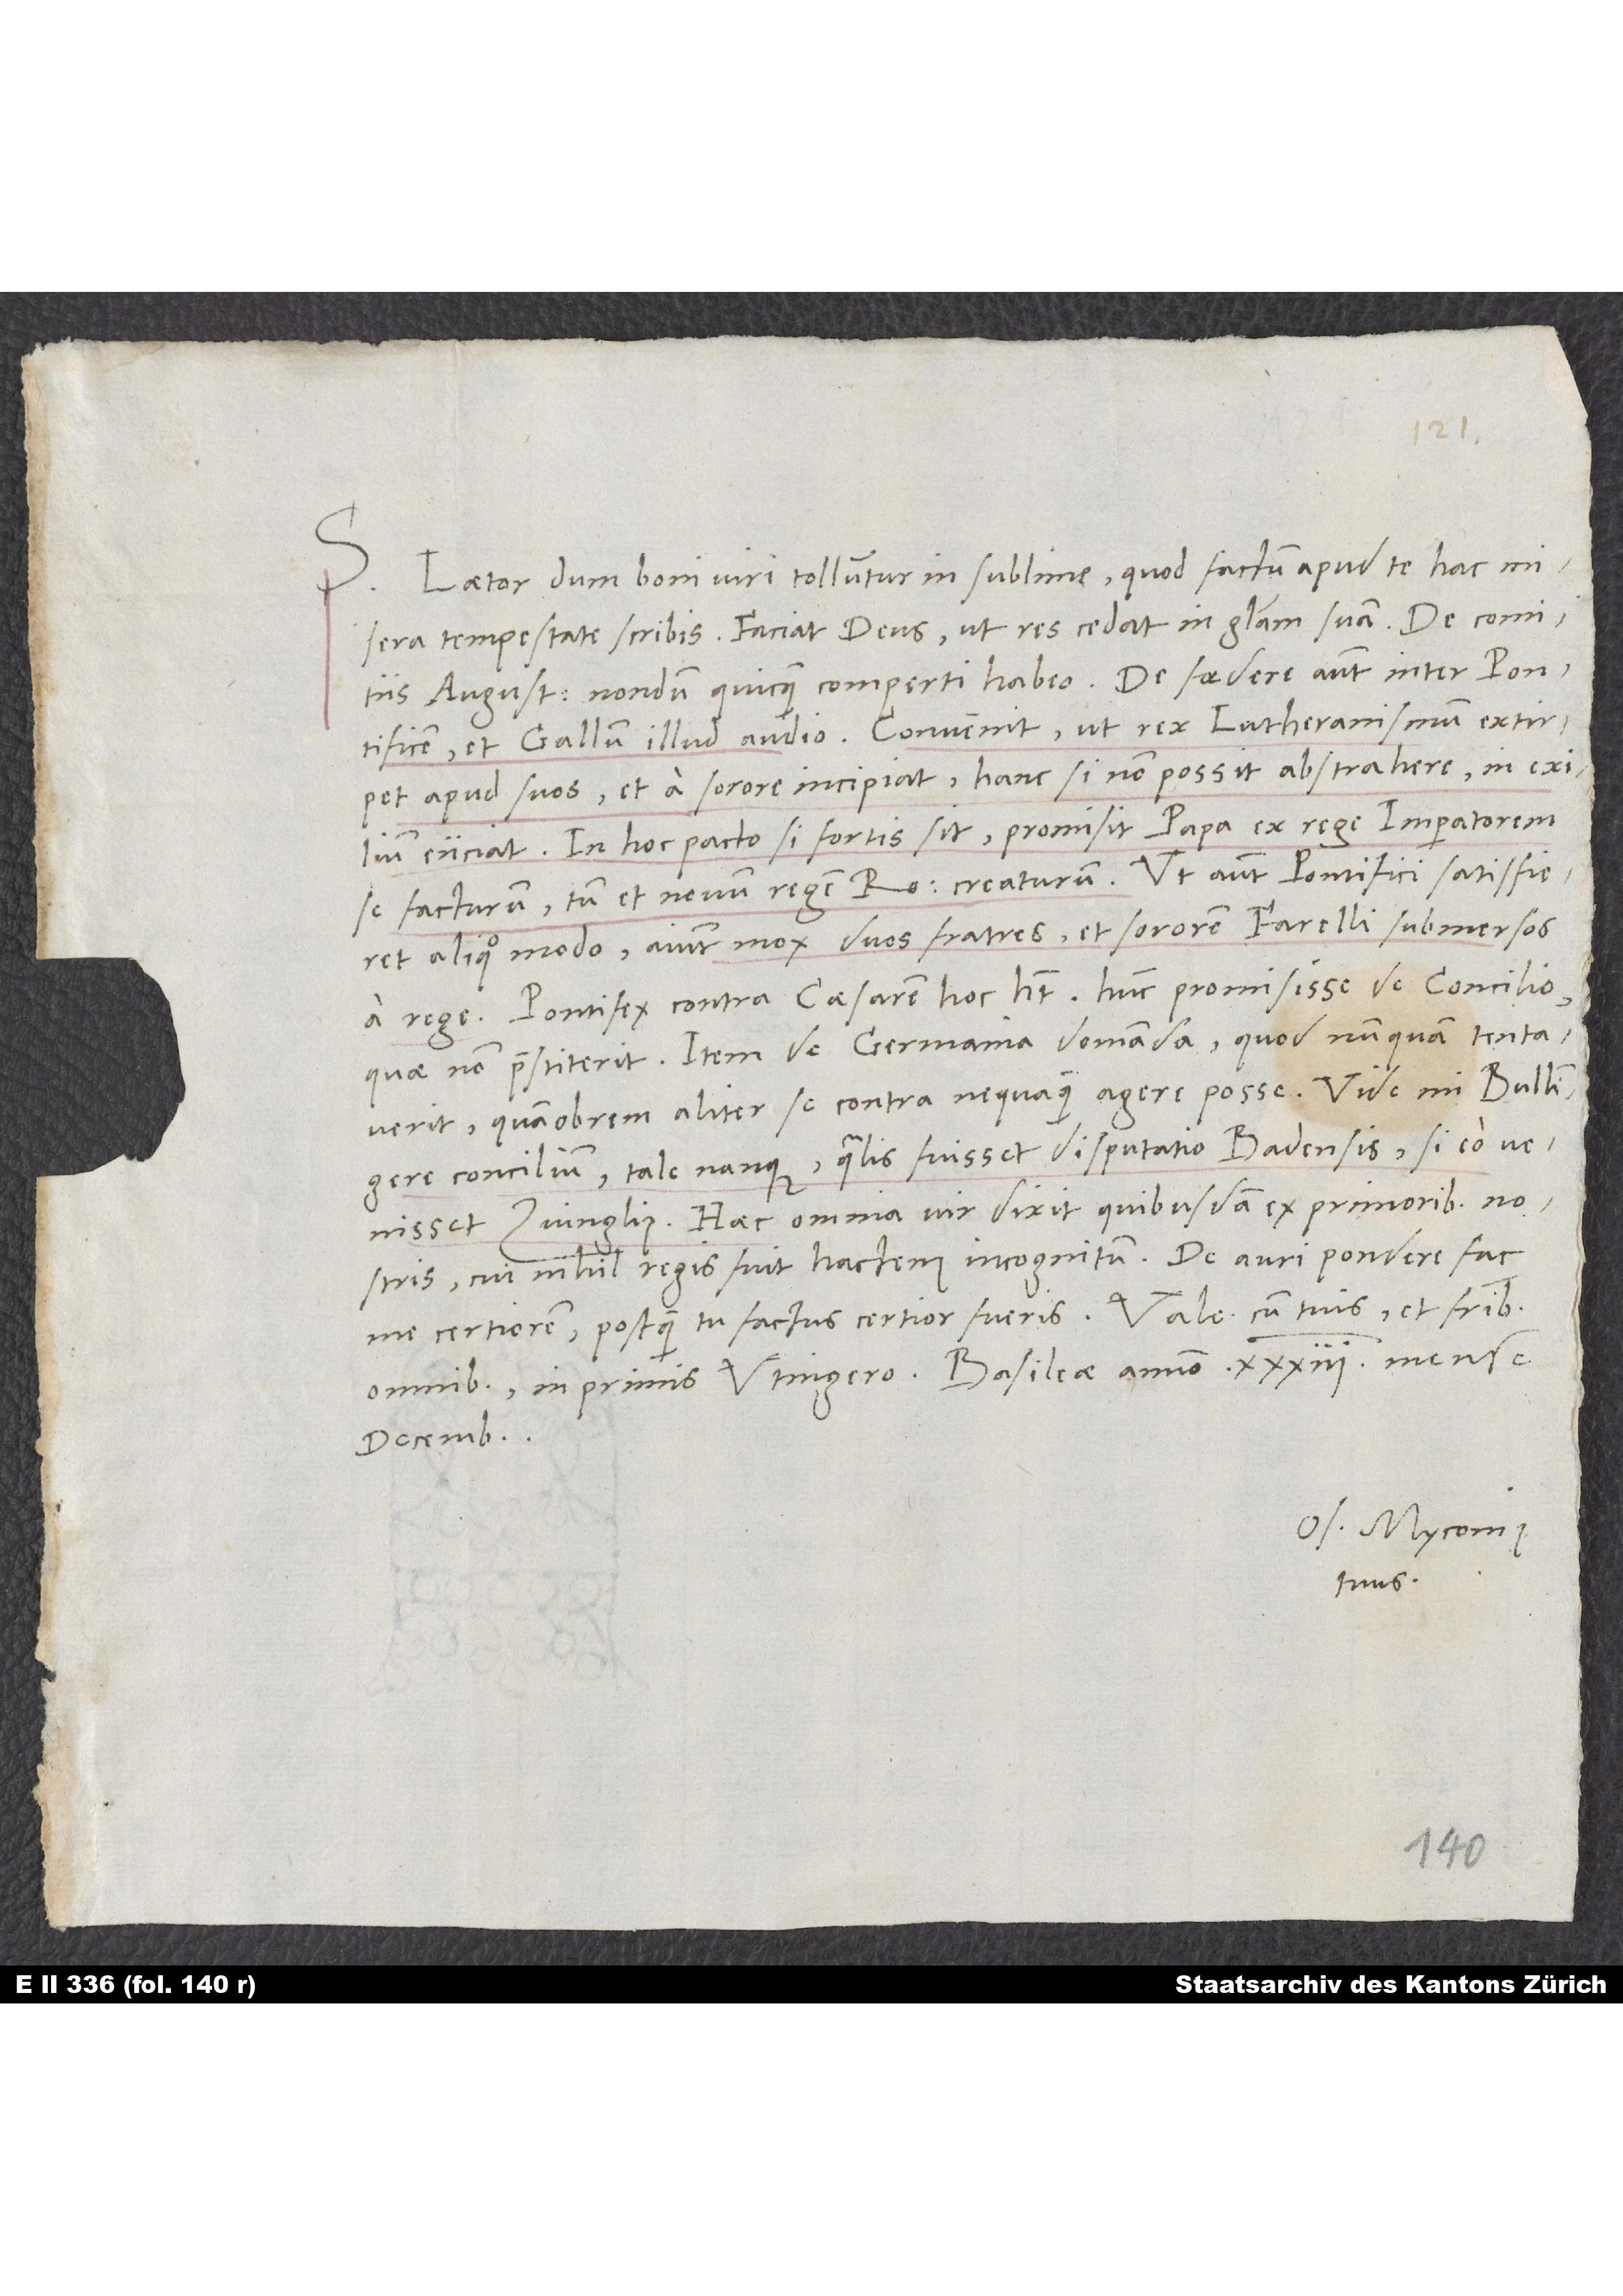 121.
S. Laetor dum boni viri tollūtur in sublime, quod factū apud te hac mi-
sera tempestate scribis. Faciat Deus, ut res cedat in glām suā. De comi-
tiis August: nondū quicq̄ comperti habeo. De foedere aūt inter Pon-
tificē, et Gallū illud audio. Convēnit, ut rex Lutheranismū extir-
pet apud suos, et à sorore incipiat, hanc si nō possit abstrahere, in exi-
liū eiiciat. In hoc pacto si fortis sit, promisit Papa ex rege Imperatorem
se facturū, tū et novū regē Ro: creaturū. Ut aūt Pontifici satisfie-
ret aliqͦ modo, aiūt mox duos fratres, et sororē Farelli submersos
à rege. Pontifex contra Caesarē hoc hēt. hūc promisisse de Concilio,
quae nō p̄stiterit. Item de Germania domāda, quod nūquā tenta-
verit, quāobrem aliter se contra nequaq̄ agere posse. Vide mi Bullī-
gere conciliū, tale nanqꝫ, qualis fuisset disputatio Badensis, si eò ve-
nisset Zuingliꝰ. Haec omnia vir dixit quibusdā ex primorib. no-
stris, cui nihil regis fuit hactenꝰ incognitū. De auri pondere fac
me certiorē, postq̄ tu factus certior fueris. Vale. cū tuis, et frīb.
omnib., in primis Utingero. Basileae annō .xxxiii. mense
Decemb..
Os. Myconiꝰ
tuus.
140
E II 336 (fol. 140 r)
Staatsarchiv des Kantons Zürich